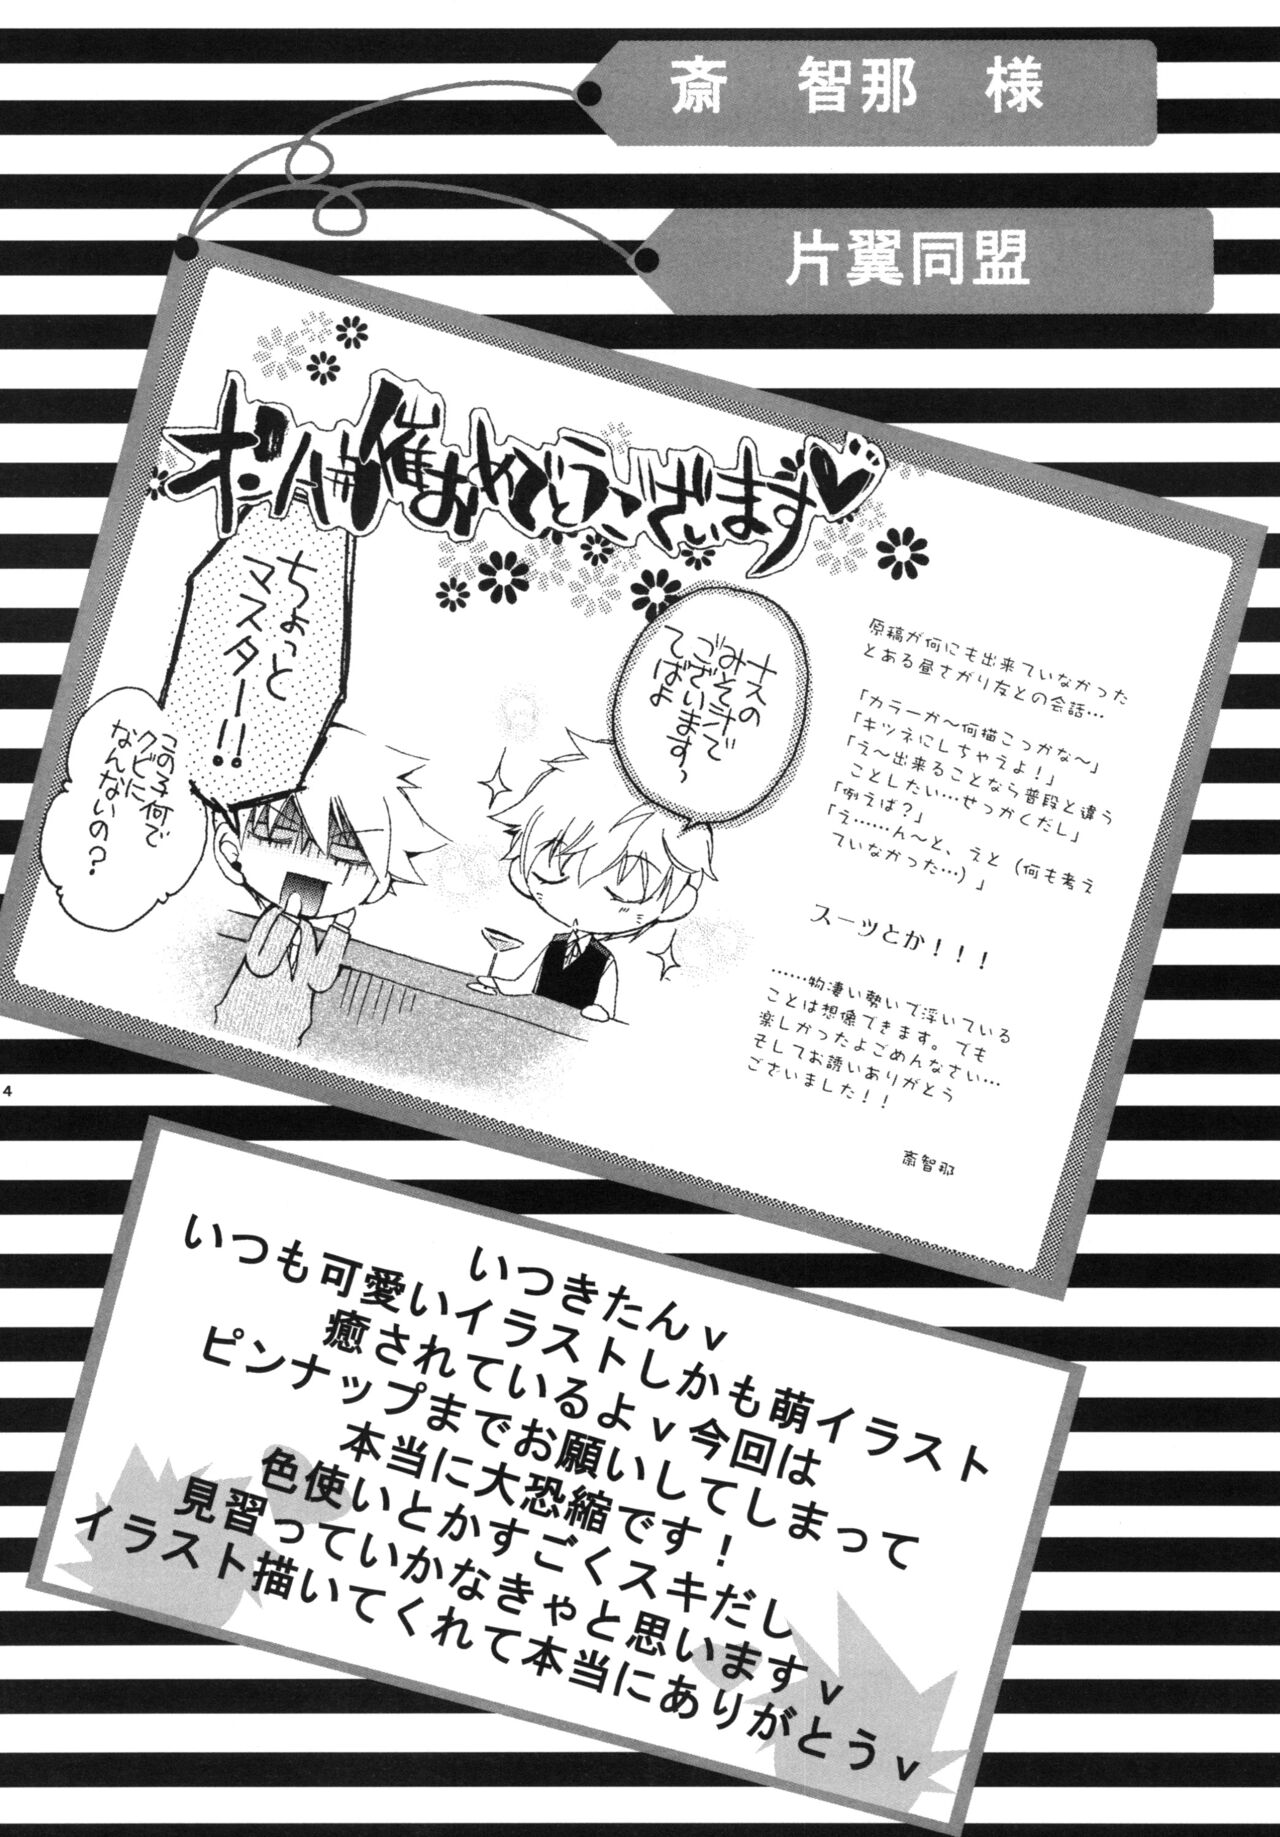 斎 智那 様
片翼同盟
開催おめでとうございます♥
ちょっと
マスター!!
この子何で
クビに
なんないの?
ナスの
みそ汁で
ございます
てばよ
原稿が何にも出来ていなかった
とある昼さがり友との会話…
「カラーか〜何描こっかな〜」
「キツネにしちゃえよ!」
「え〜出来ることなら普段と違う
ことしたい…せっかくだし」
「例えば?」
「え……ん〜と、えと(何も考え
ていなかった…)」
スーツとか!!!
……物凄い勢いで浮いている
ことは想像できます。でも
楽しかったよごめんなさい…
そしてお誘いありがとう
ございました!!
斎智那
4
いつきたんv
いつも可愛いイラストしかも萌イラスト
癒されているよv今回は
ピンナップまでお願いしてしまって
本当に大恐縮です!
色使いとかすごくスキだし
見習っていかなきゃと思いますv
イラスト描いてくれて本当にありがとうv